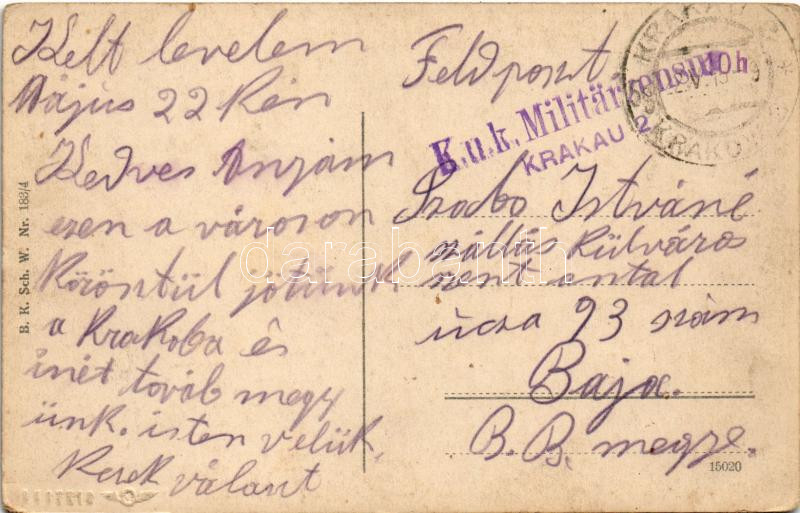 Kelt levelem
Május 22 Kén
Kedves Anyám
ezen a városon
Körösntül jötünk
a Krakoba és
inét továb megy
ünk. isten velük.
Kerek válant
B. K. Sch. W. Nr. 183/4
Feldposzt
KRAKAU
KRAKÓW
K.u.k. Militärzensur
KRAKAU 2
Szabo Istváné
szállás Külváros
szent antal
ucza 93 szám
Baja.
B. B. megye.
15020
darabanth